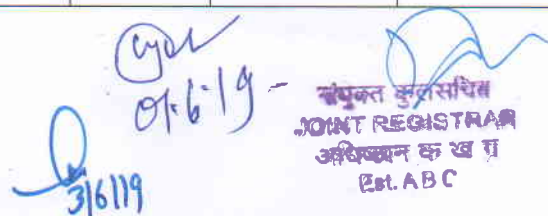 01.6.19
संयुक्त कुलसचिव
JOINT REGISTRAR
अधिष्ठान क ख ग
Est. A B C
3/6/19